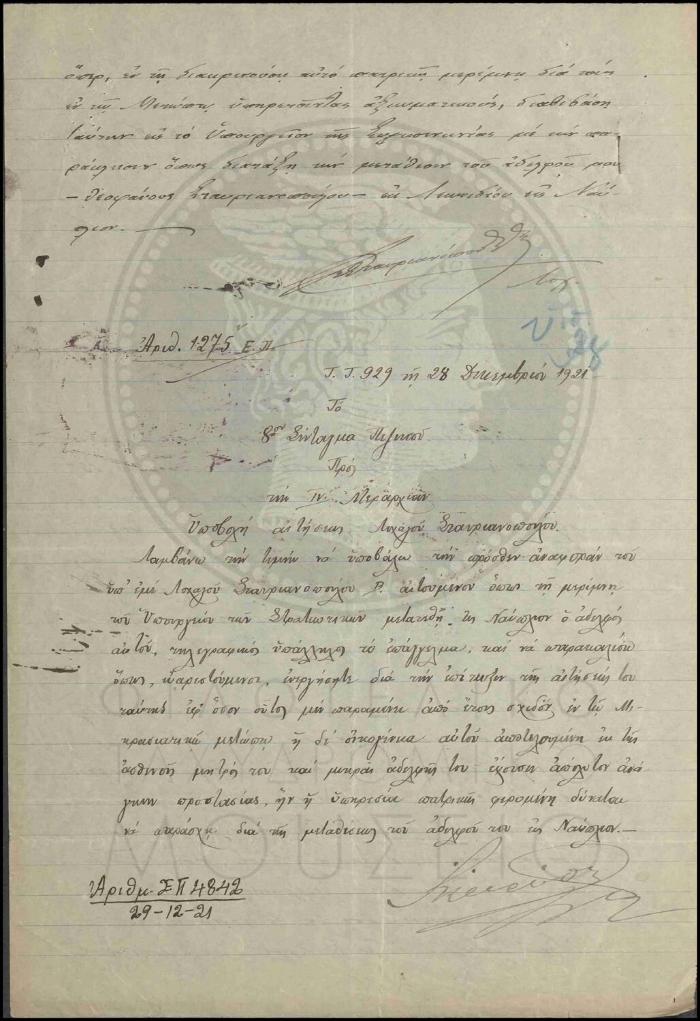 ὅπερ, ἐν τῇ διακρινούσῃ αὐτό πατρικῇ μερίμνῃ διά τούς
ἐν τῷ Μετώπῳ ὑπηρετοῦντας ἀξιωματικούς, διαβιβάσῃ
ταύτην εἰς τό Ὑπουργεῖον τῆς Συγκοινωνίας μέ τήν πα-
ράκλησιν ὅπως διατάξῃ τήν μετάθεσιν τοῦ ἀδελφοῦ μου
– Θεοφάνους Σταυριανοπούλου – ἐκ Λεωνιδίου εἰς Ναύ-
πλιον. —
Σταυριανόπουλος
Λοχ.
Ἀριθ. 1275 Ε.Π.
Τ.Τ. 929 τῇ 28 Δεκεμβρίου 1921
Τό
8ον Σύνταγμα Πεζικοῦ
Πρός
τήν IV Μεραρχίαν
Ὑποβολή αἰτήσεως Λοχαγοῦ Σταυριανοπούλου
Λαμβάνω τήν τιμήν νά ὑποβάλω τήν πρόσθεν ἀναφοράν τοῦ
ὑπ' ἐμέ Λοχαγοῦ Σταυριανοπούλου Π. αἰτουμένου ὅπως τῇ μερίμνῃ
τοῦ Ὑπουργείου τῶν Στρατιωτικῶν μετατεθῇ εἰς Ναύπλιον ὁ ἀδελφός
αὐτοῦ, τηλεγραφικός ὑπάλληλος τό ἐπάγγελμα, καί νά παρακαλέσω
ὅπως, εὐαρεστούμενοι, ἐνεργήσητε διά τήν ἐπίτευξιν τῆς αἰτήσεώς του
ταύτης ἐφ' ὅσον οὗτος μέν παραμένει ἀπό ἔτους σχεδόν ἐν τῷ Μι-
κρασιατικῷ μετώπῳ ἡ δέ οἰκογένεια αὐτοῦ ἀποτελουμένη ἐκ τῆς
ἀσθενοῦς μητρός του καί μικρᾶς ἀδελφῆς του ἔχουσιν ἀπόλυτον ἀνά-
γκην προστασίας, ἥν ἡ ὑπηρεσία πατρικῶς φερομένη δύναται
νά παράσχῃ διά τῆς μεταθέσεως τοῦ ἀδελφοῦ του εἰς Ναύπλιον. —
Ἀριθμ. ΕΠ 4842
29-12-21
ΦΙΛΟΤΕΛΙΚΟ
ΜΟΥΣΕΙΟ